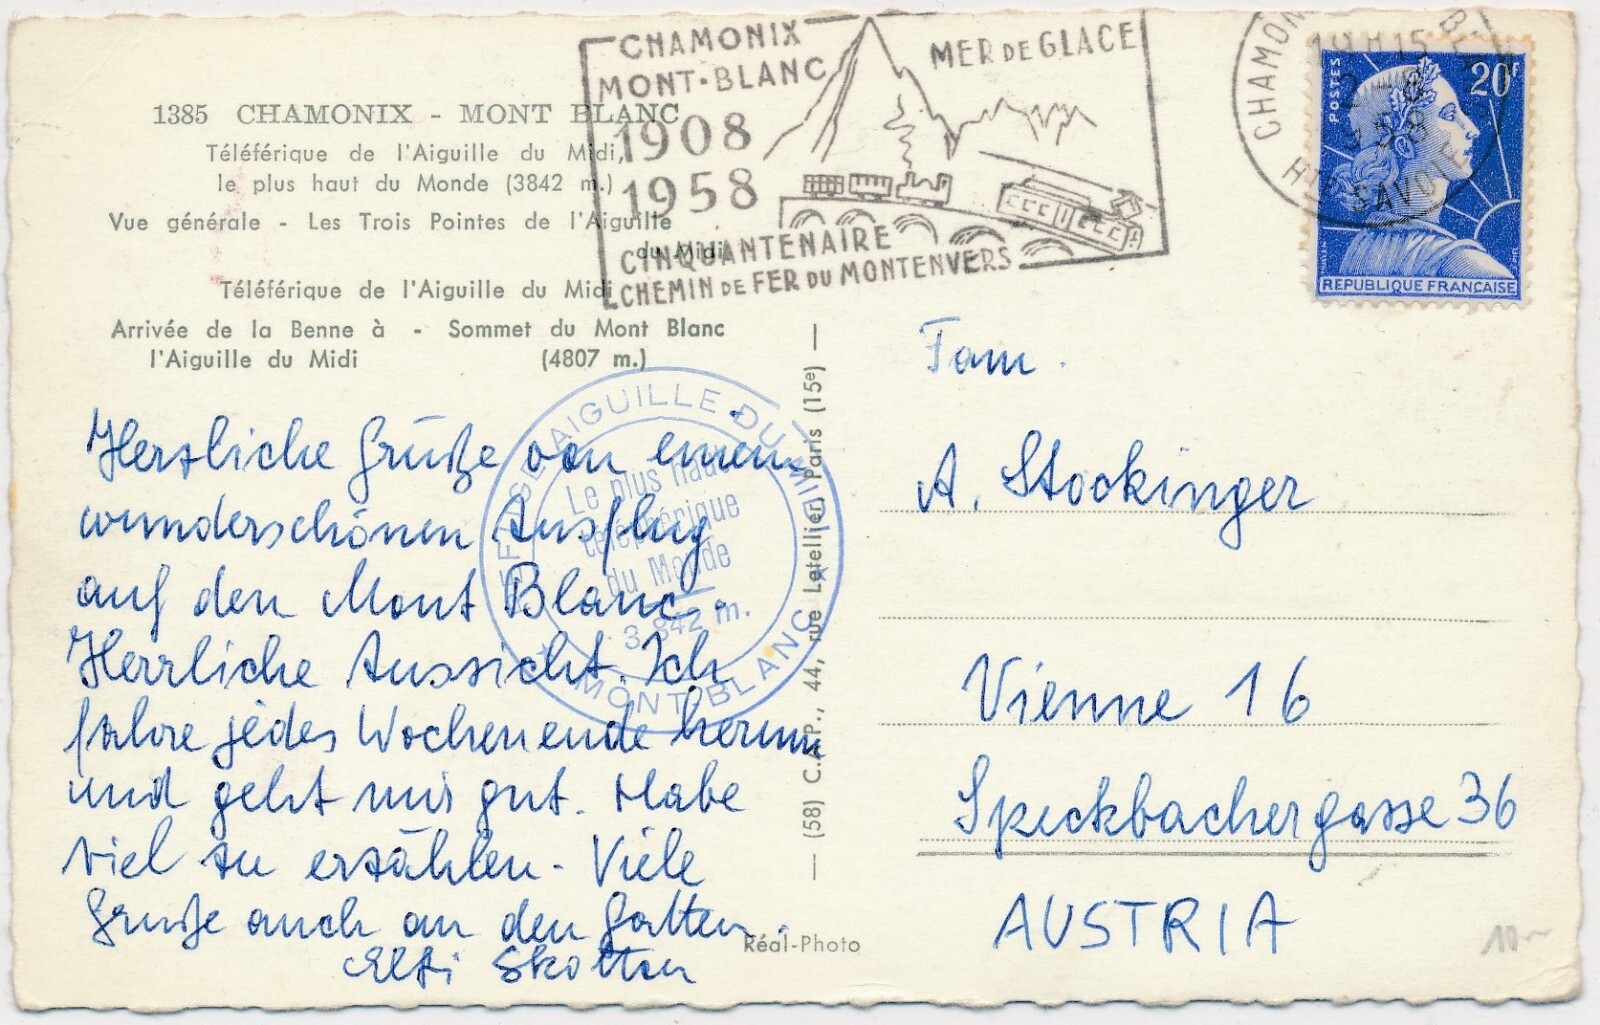 CHAMONIX
MONT-BLANC
MER DE GLACE
1908
1958
CINQUANTENAIRE
CHEMIN DE FER DU MONTENVERS
19H15
2-8
1958
HTE SAVOIE
POSTES
20F
REPUBLIQUE FRANÇAISE
1385 CHAMONIX - MONT BLANC
Téléférique de l'Aiguille du Midi,
le plus haut du Monde (3842 m.)
Vue générale - Les Trois Pointes de l'Aiguille
du Midi
Téléférique de l'Aiguille du Midi
Arrivée de la Benne à - Sommet du Mont Blanc
l'Aiguille du Midi (4807 m.)
AIGUILLE DU MIDI
Le plus haut
téléphérique
du Monde
3.842 m.
MONT BLANC
Herzliche Grüße von einem
wunderschönen Ausflug
auf den Mont Blanc.
Herrliche Aussicht. Ich
fahre jedes Wochenende herum
und geht mir gut. Habe
viel zu erzählen. Viele
Grüße auch an den Gatten.
Elfi
— (58) C.A.P., 44, rue Letellier, Paris (15e) —
Réal-Photo
Fam.
A. Stockinger
Vienne 16
Speckbachergasse 36
AUSTRIA
10.-